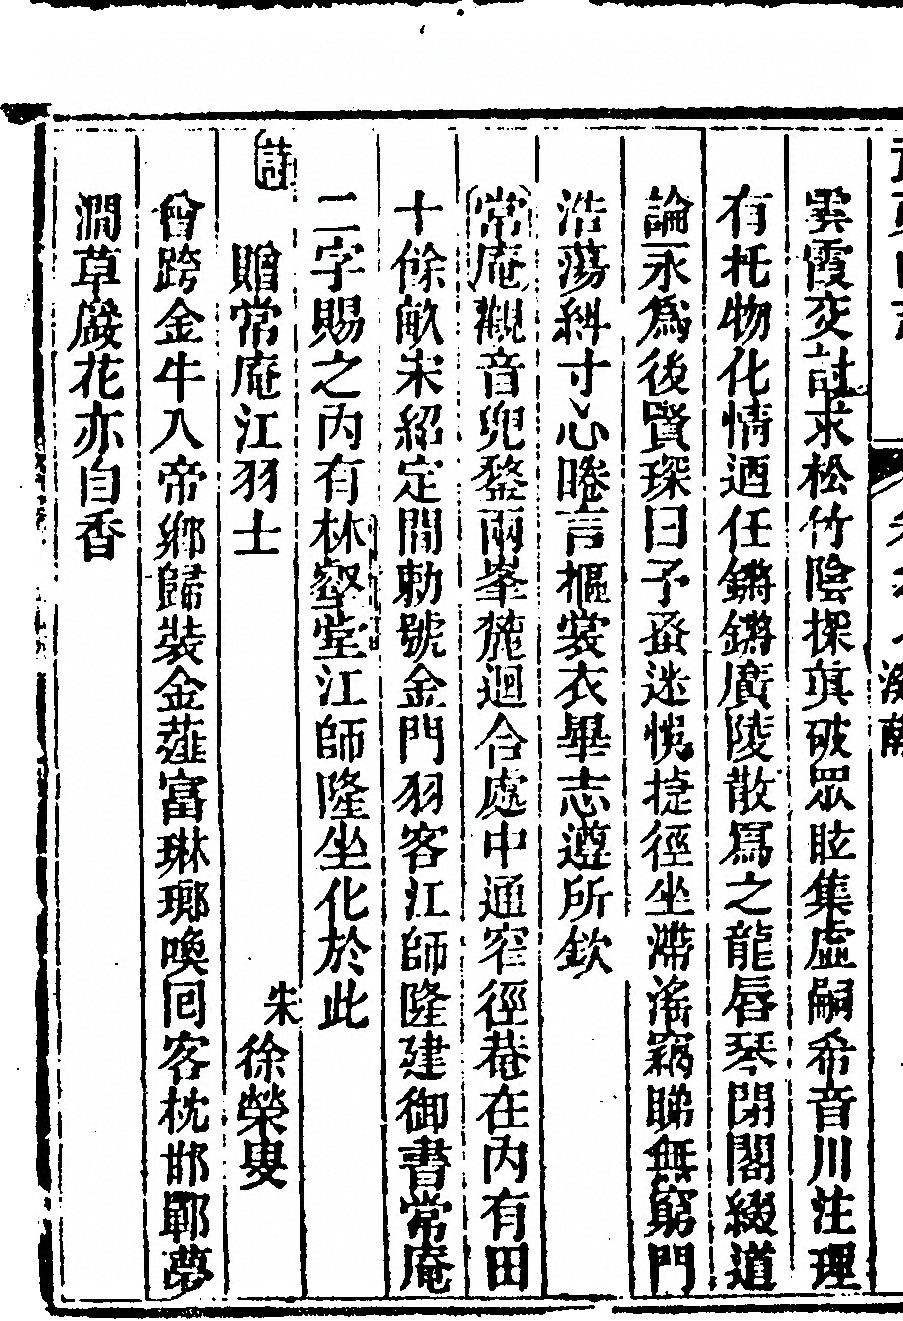 雲霞交計求松竹陰探真破眾眩集虛嗣希音川注理
有托物化情迺任鏘鏘廣陵散寫之龍唇琴閉閣綴道
論永為後賢琛曰予蚤迷悅捷徑坐滯淫竊睇無窮門
浩蕩糾寸心睠言摳裳衣畢志遵所欽
常庵觀音兜鍪兩峯麓迴合處中通窄徑菴在內有田
十餘畝宋紹定間勅號金門羽客江師隆建御書常庵
二字賜之內有林壑堂江師隆坐化於此
詩
贈常庵江羽士 朱 徐榮叟
曾跨金牛入帝鄉歸裝金薤富琳瑯喚囘客枕邯鄲夢
澗草巖花亦自香